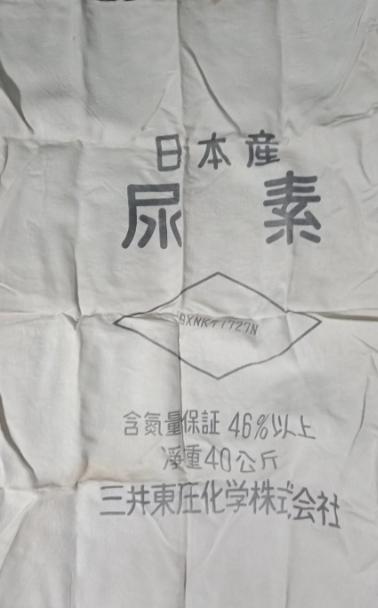 日本産
尿素
含氮量保証 46%以上
净重40公斤
三井東圧化学株式会社